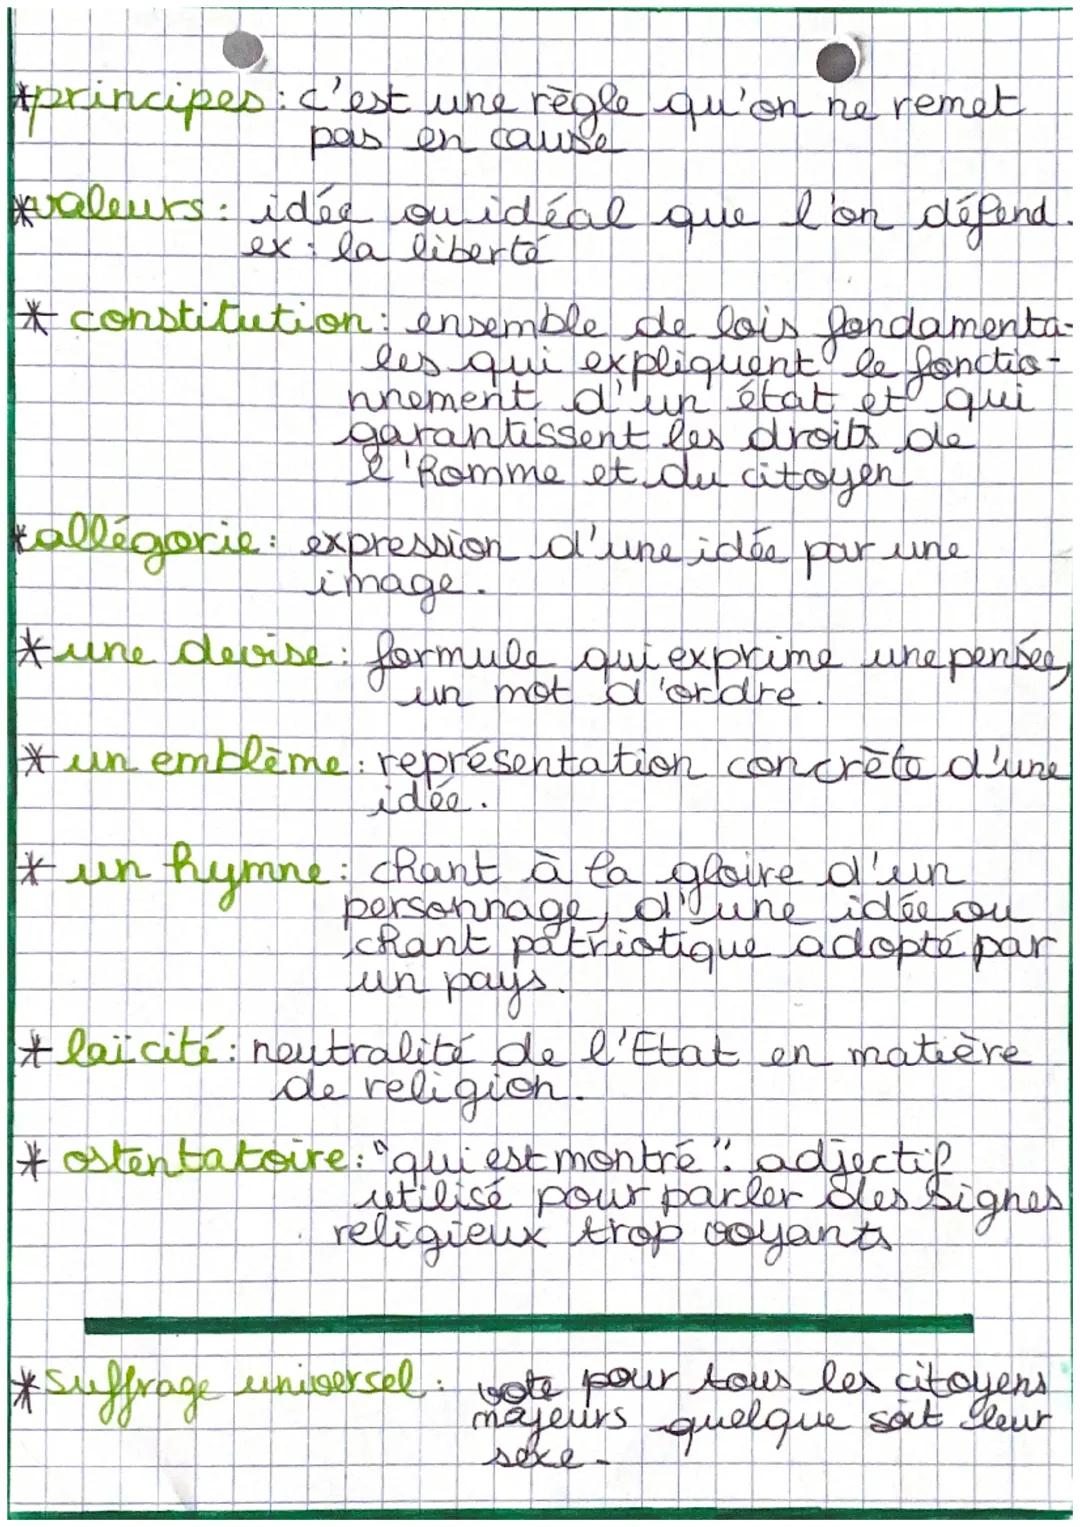 *principes : c'est une règle qu'on ne remet
pas en cause
*valeurs : idée ou idéal que l'on défend.
ex : la liberté
* constitution : ensemble de lois fondamenta-
les qui expliquent le fonctio-
nnement d'un état et qui
garantissent les droits de
l'homme et du citoyen
*allégorie : expression d'une idée par une
image.
* une devise : formule qui exprime une pensée,
un mot d'ordre.
* un emblème : représentation concrète d'une
idée.
* un hymne : chant à la gloire d'un
personnage, d'une idée ou
chant patriotique adopté par
un pays.
* laïcité : neutralité de l'Etat en matière
de religion.
* ostentatoire : "qui est montré" : adjectif
utilisé pour parler des signes
religieux trop voyants
*suffrage universel : vote pour tous les citoyens
majeurs quelque soit leur
sexe.